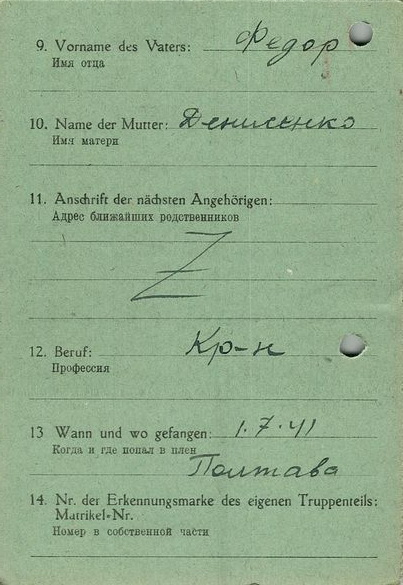 9. Vorname des Vaters: Федор
Имя отца
10. Name der Mutter: Денисенко
Имя матери
11. Anschrift der nächsten Angehörigen:
Адрес ближайших родственников
Z
12. Beruf: Кр-н
Профессия
13 Wann und wo gefangen: 1.7.41
Когда и где попал в плен
Полтава
14. Nr. der Erkennungsmarke des eigenen Truppenteils:
Matrikel-Nr.
Номер в собственной части